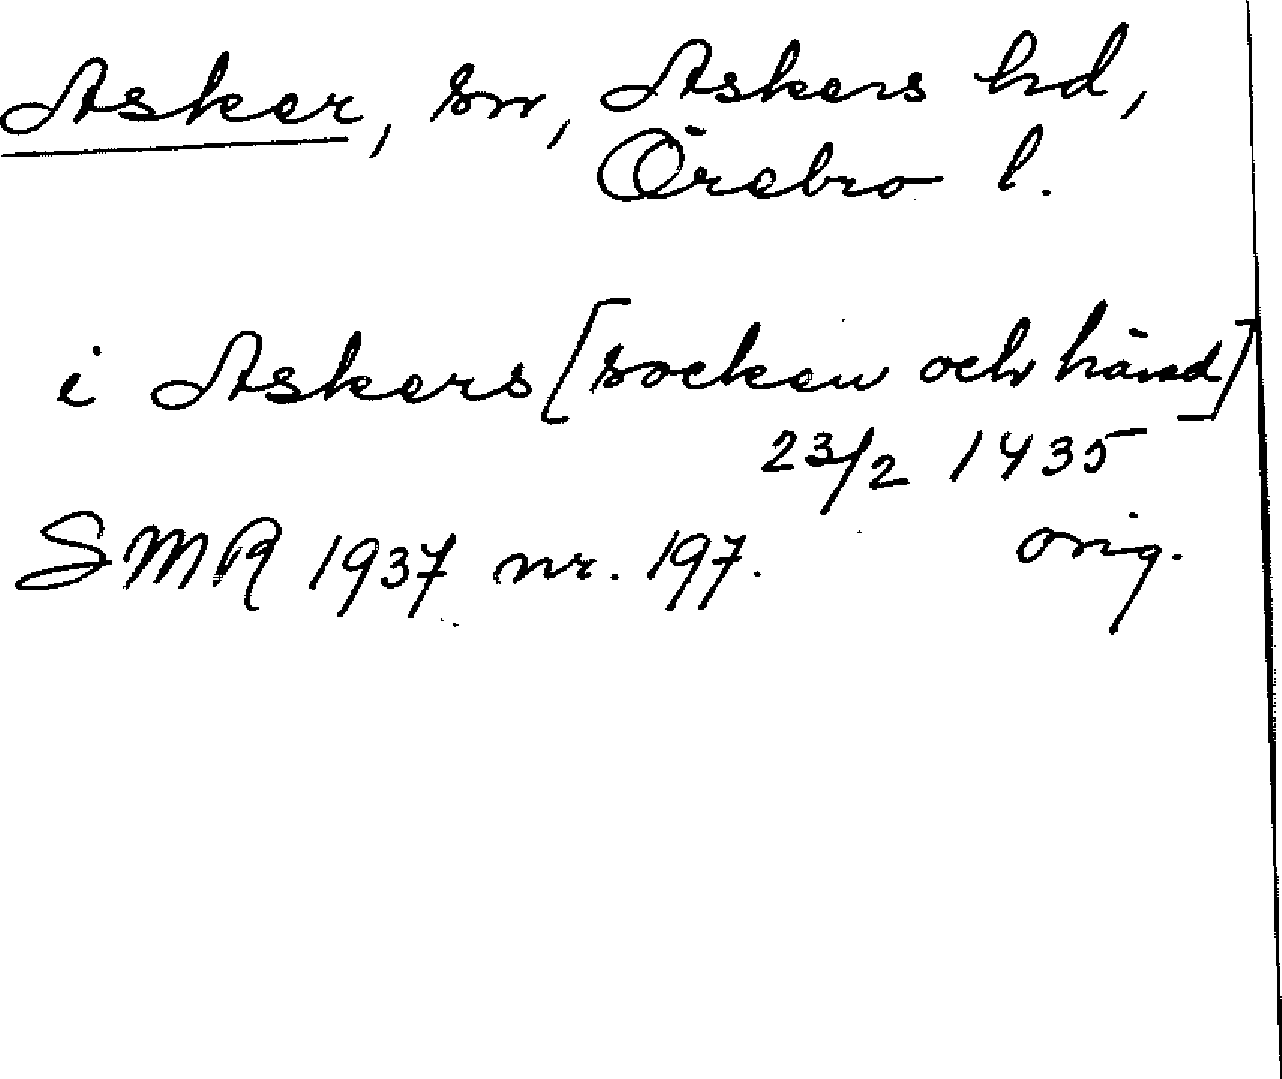 Asker, sn, Askers hd,
Örebro l.
i Askers [socken och härad]
23/2 1435
SMR 1937 nr. 197. orig.